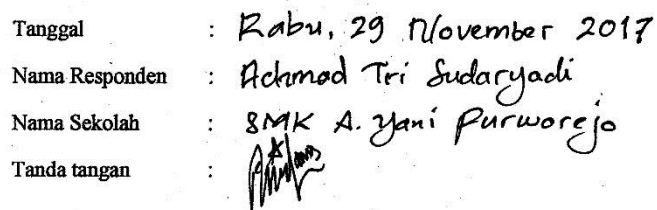 Tanggal : Rabu, 29 November 2017
Nama Responden : Achmad Tri Sudaryadi
Nama Sekolah : SMK A. Yani Purworejo
Tanda tangan :